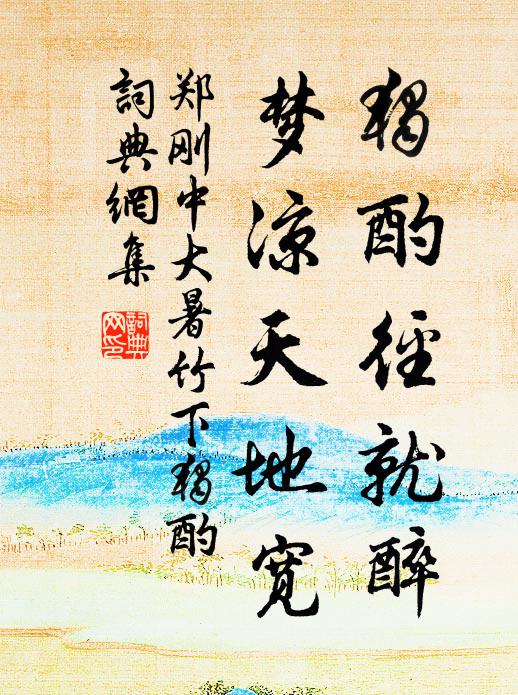 獨酌径就醉
梦凉天地宽
郑刚中大暑竹下獨酌
詞典網集
詞典
网印